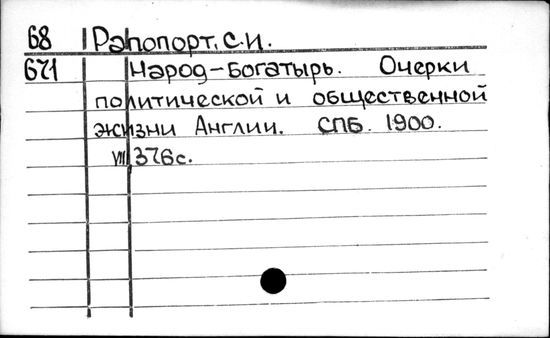 68 Рапопорт, С.И.
671 Народ-богатырь. Очерки
политической и общественной
жизни Англии. СПБ. 1900.
VIII 376с.